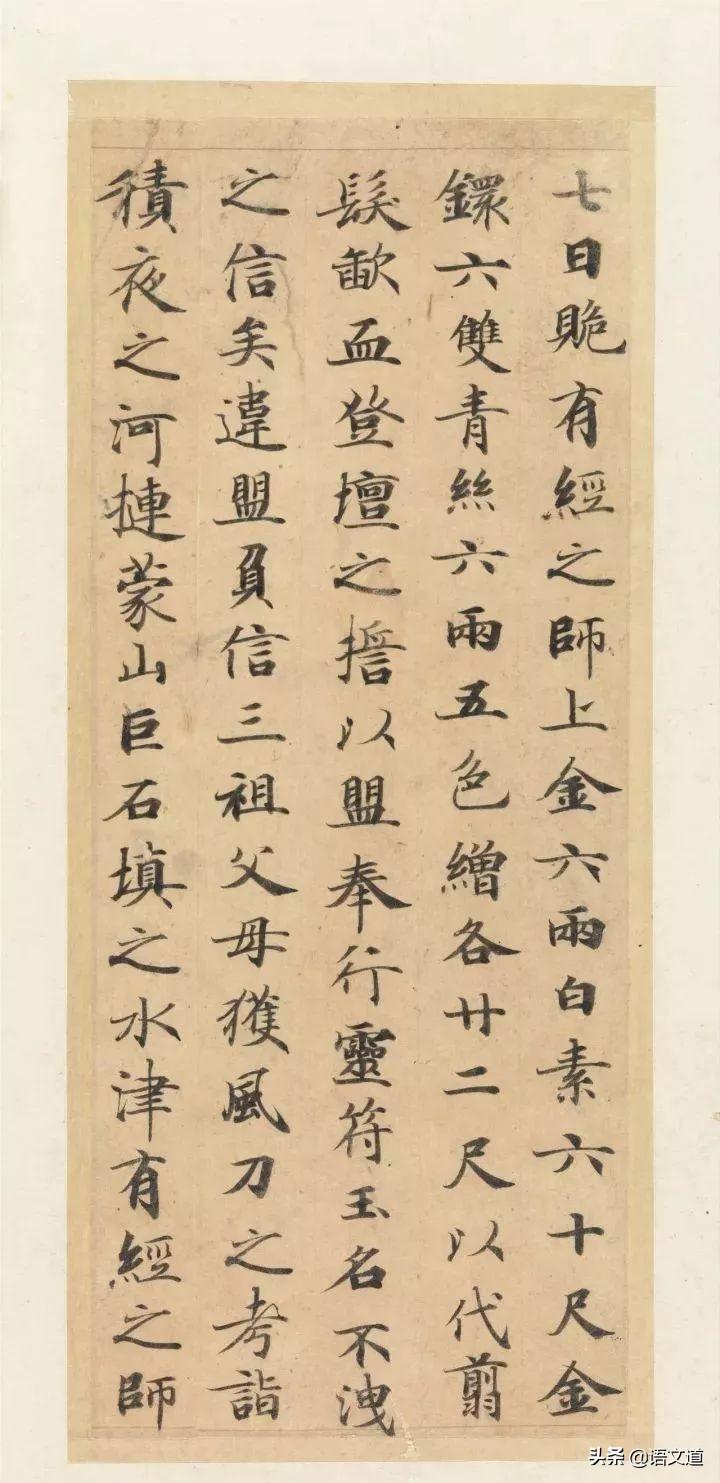 七日貹有經之師上金六兩白素六十尺金
鐶六雙青絲六兩五色繒各廿二尺以代翦
髮歃血登壇之擔以盟奉行靈符玉名不洩
之信矣違盟負信三祖父母獲風刀之考詣
積夜之河摙蒙山巨石填之水津有經之師
头条 @语文道